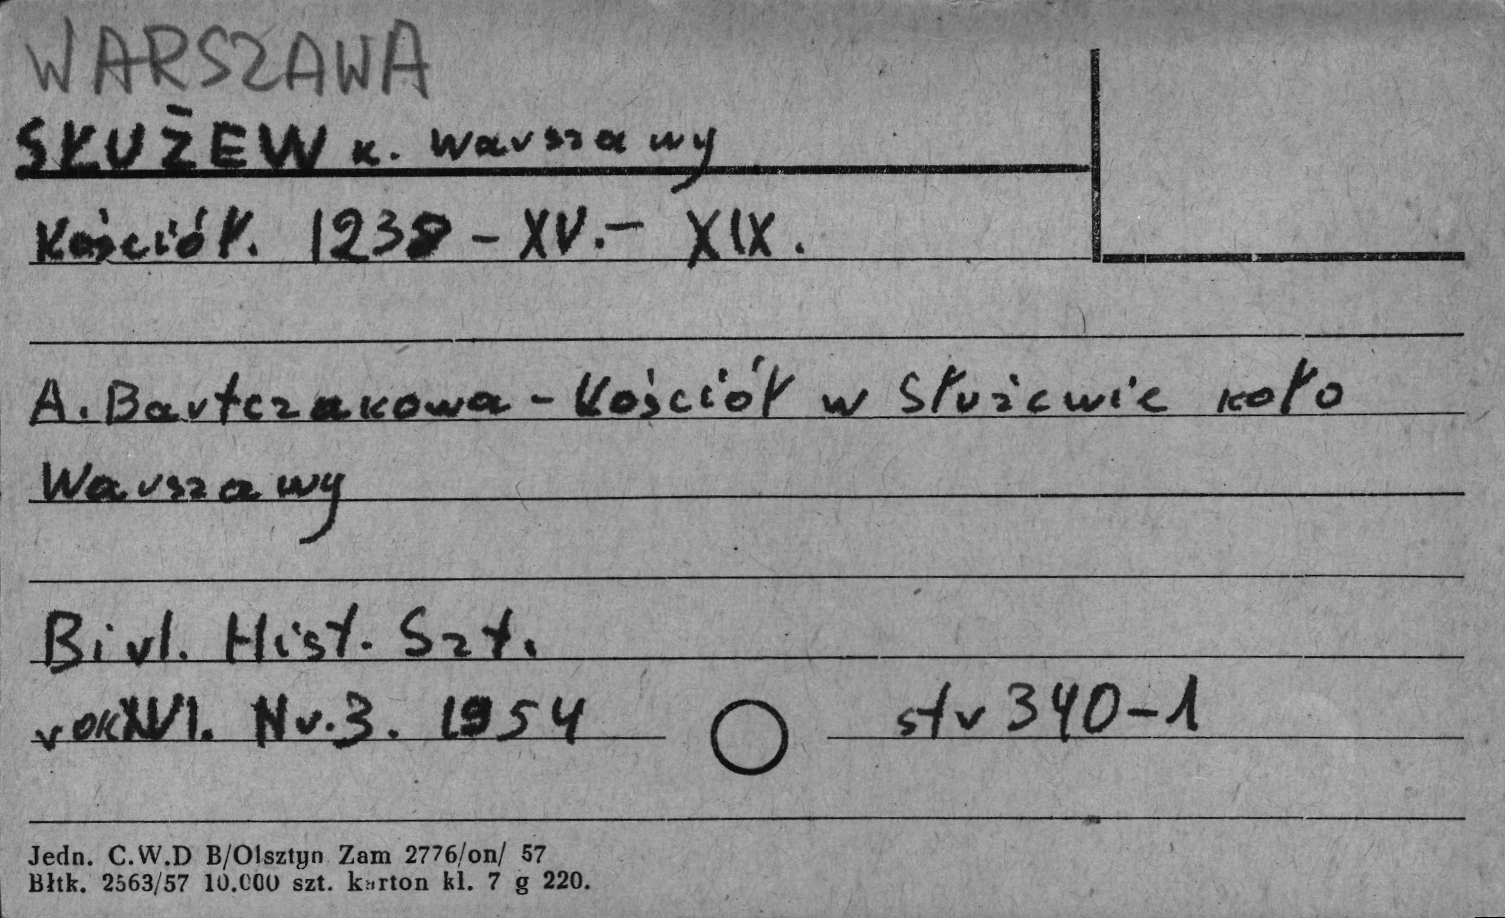 WARSZAWA
SŁUŻEW k. Warszawy
Kościół. 1238 - XV. - XIX.
A. Bartczakowa - Kościół w Służewie koło
Warszawy
Biul. Hist. Szt.
rok XVI. Nr. 3. 1954 str 340-1
Jedn. C.W.D B/Olsztyn Zam 2776/on/ 57
Błtk. 2563/57 10.000 szt. karton kl. 7 g 220.